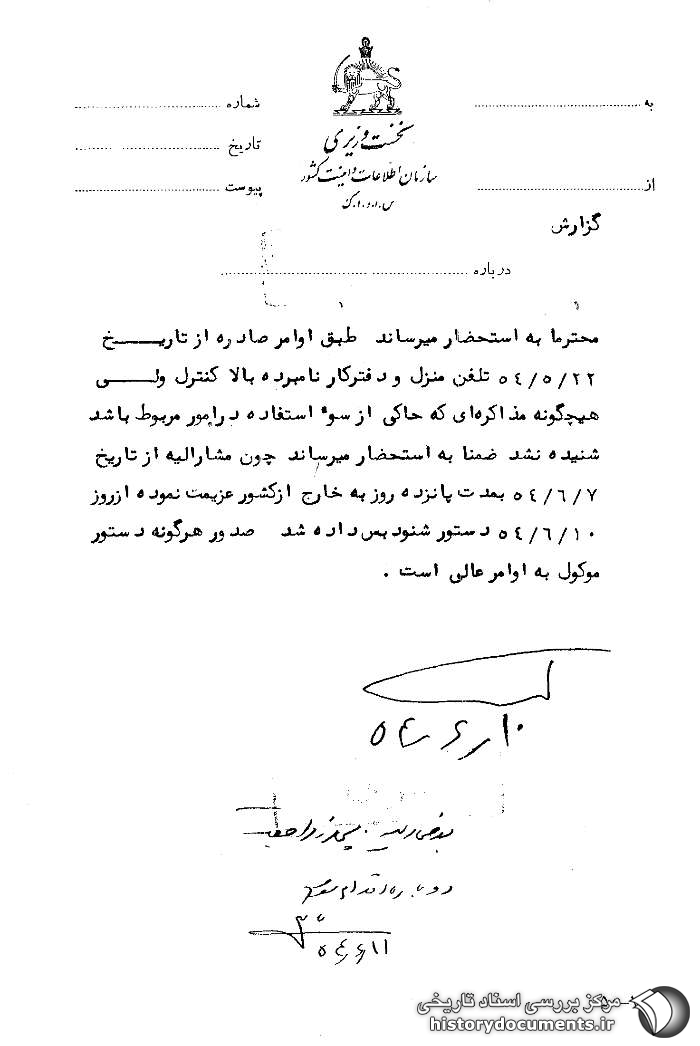 به
شماره
نخست وزیری
تاریخ
سازمان اطلاعات و امنیت کشور
از
پیوست
س.ا.و.ا.ک
گزارش
درباره
محترما به استحضار میرساند طبق اوامر صادره از تاریخ
۵٤/۵/۲۲ تلفن منزل و دفترکار نامبرده بالا کنترل ولی
هیچگونه مذاکره‌ای که حاکی از سوء استفاده درامور مربوط باشد
شنیده نشد ضمنا به استحضار میرساند چون مشارالیه از تاریخ
۵٤/٦/۷ بمدت پانزده روز به خارج ازکشور عزیمت نموده ازروز
۵٤/٦/۱۰ دستور شنود پس داده شد صدور هرگونه دستور
موکول به اوامر عالی است .
۵٤/٦/۱۰
بعرض رسید
دوباره اقدام
۵٤/٦/۱۱
مرکز بررسی اسناد تاریخی
historydocuments.ir